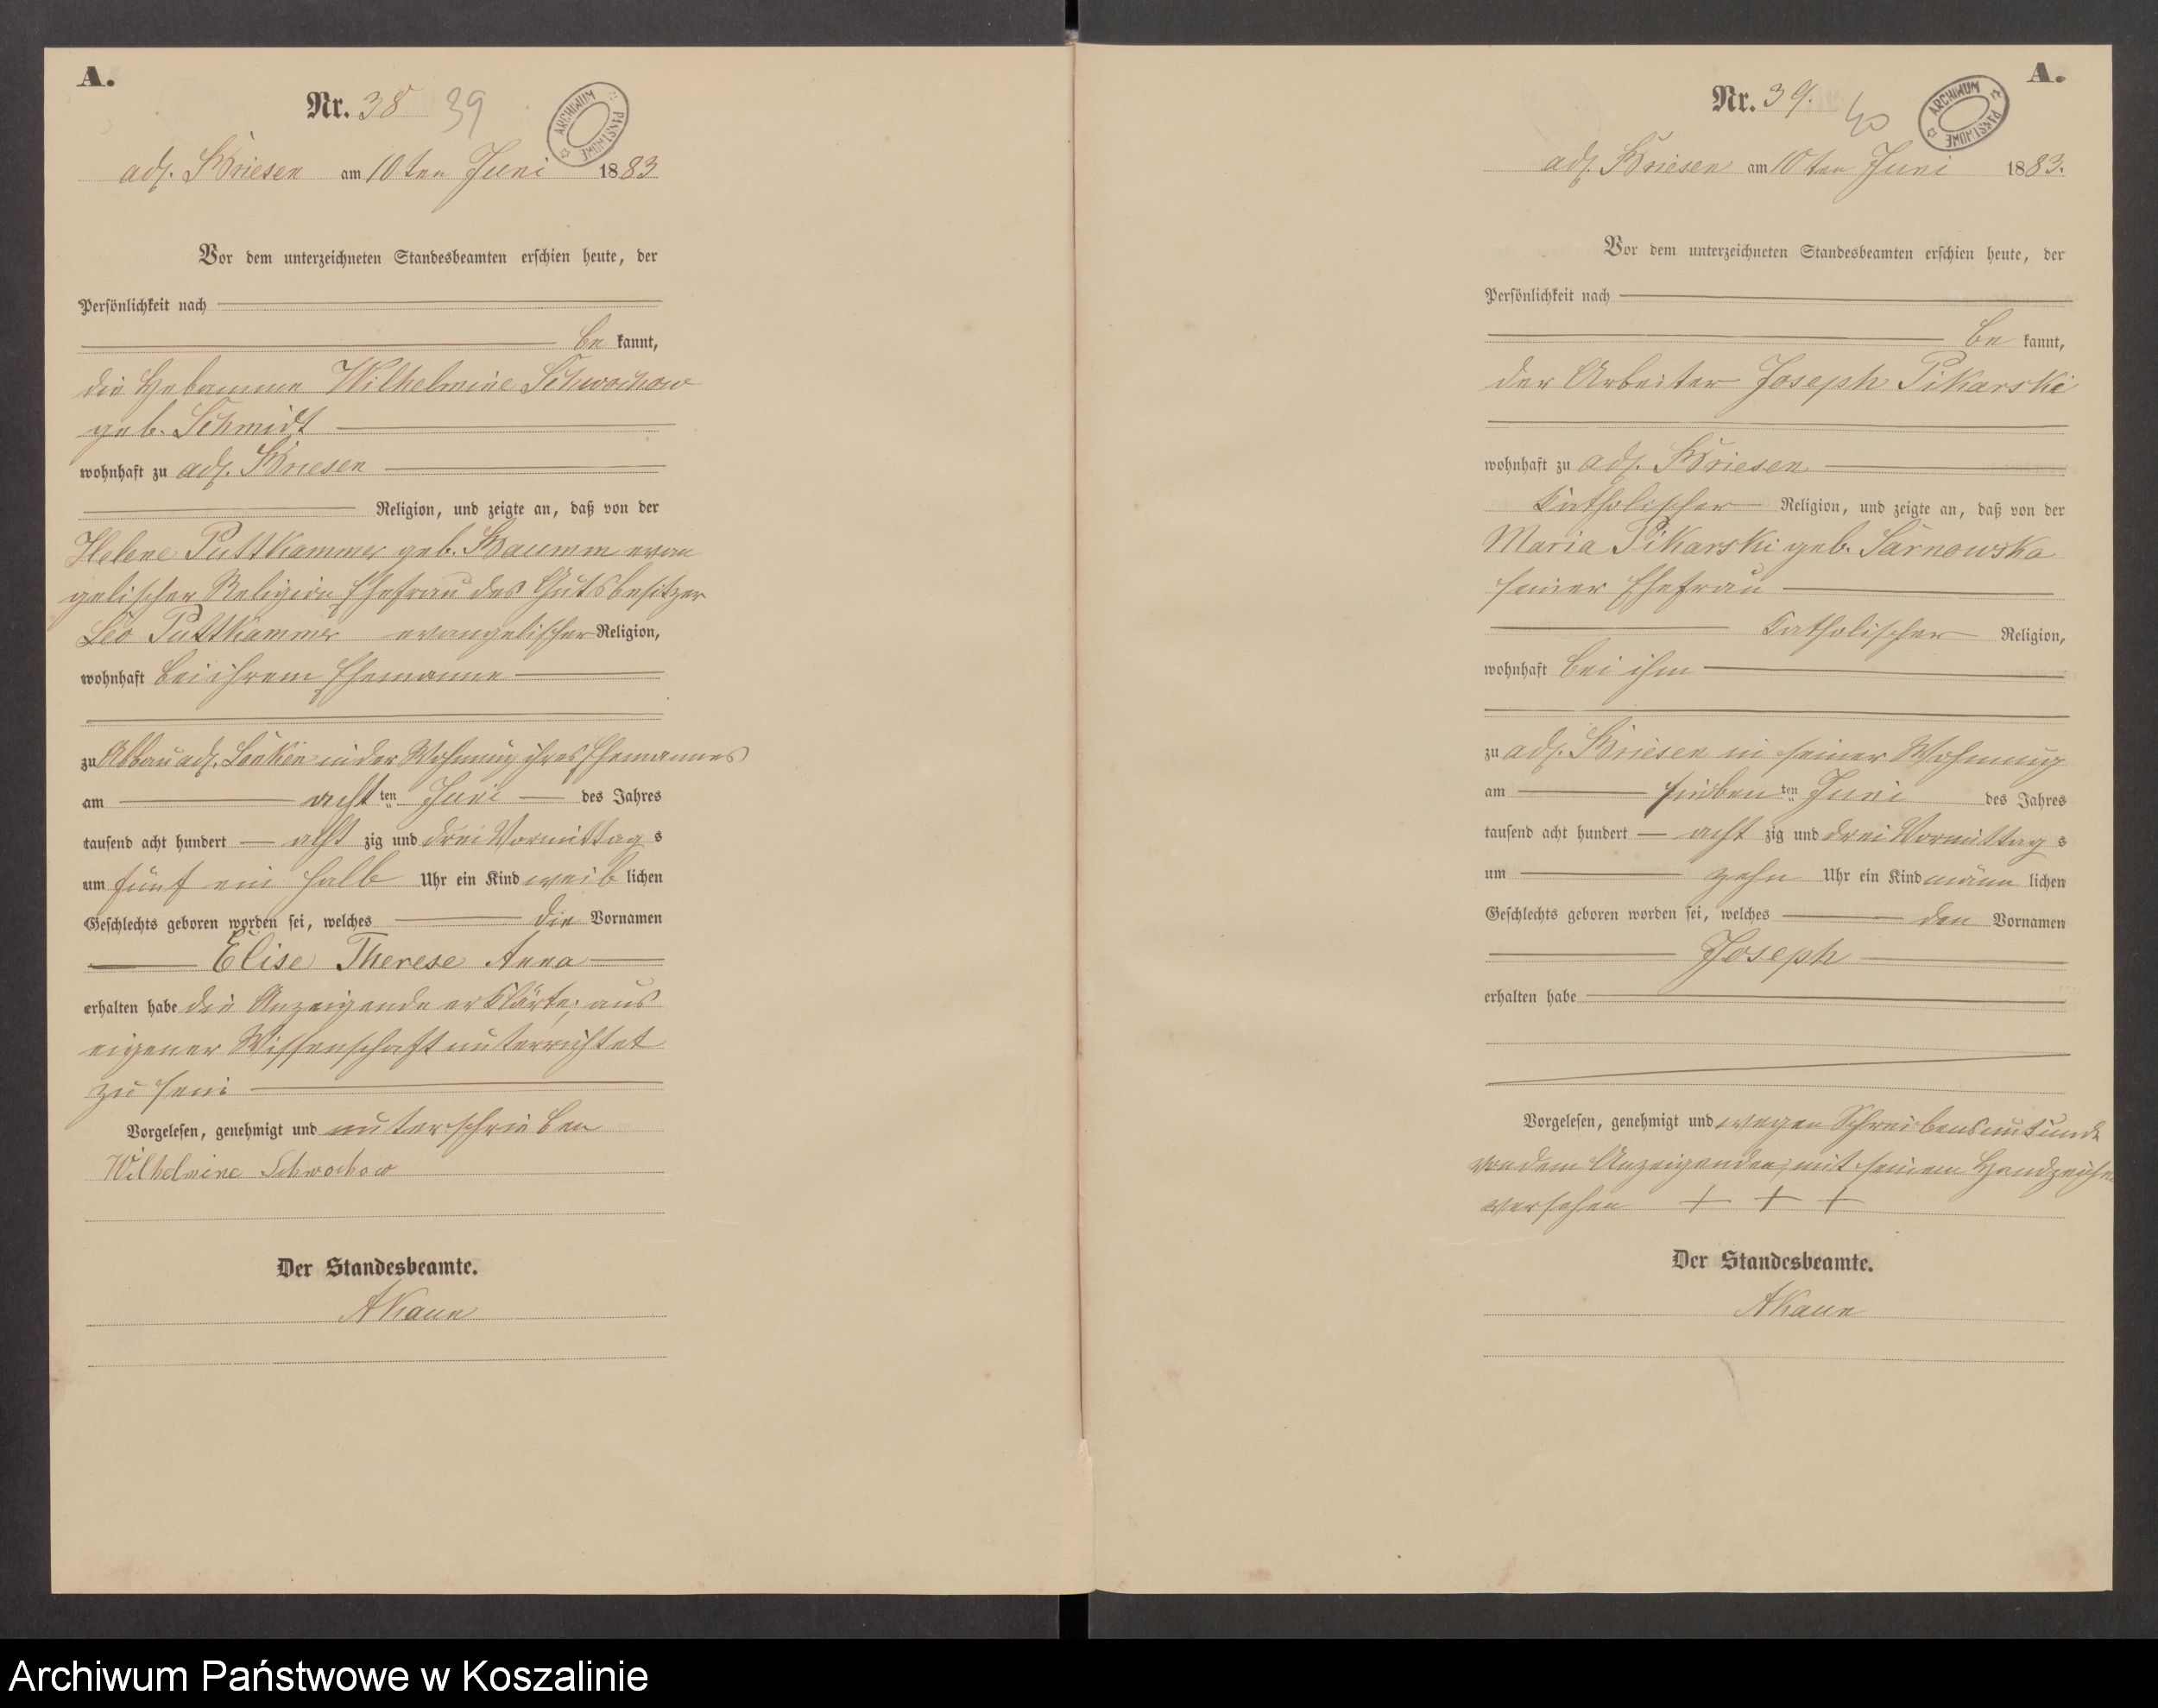 A.
Nr. 38 39
ARCHIWUM PAŃSTWOWE
adl. Briesen am 10ten Juni 1883
Vor dem unterzeichneten Standesbeamten erschien heute, der
Persönlichkeit nach
be kannt,
die Hebamme Wilhelmine Schwochow
geb. Schmidt
wohnhaft zu adl. Briesen
Religion, und zeigte an, daß von der
Helene Puttkammer geb. Baumm evan
gelischer Religion Ehefrau des Gutsbesitzer
Leo Puttkammer evangelischer Religion,
wohnhaft bei ihrem Ehemanne
zu Abbau adl. in der Wohnung ihres Ehemannes
am acht ten Juni des Jahres
tausend acht hundert acht zig und drei Vormittag s
um fünf ein halb Uhr ein Kind weib lichen
Geschlechts geboren worden sei, welches die Vornamen
Elise Therese Anna
erhalten habe die Anzeigende erklärte, aus
eigener Wissenschaft unterrichtet
zu sein
Vorgelesen, genehmigt und unterschrieben
Wilhelmine Schwochow
Der Standesbeamte.
AKaun
A.
Nr. 39. 40
ARCHIWUM PAŃSTWOWE
adl. Briesen am 10ten Juni 1883.
Vor dem unterzeichneten Standesbeamten erschien heute, der
Persönlichkeit nach
be kannt,
der Arbeiter Joseph Pikarski
wohnhaft zu adl. Briesen
katholischer Religion, und zeigte an, daß von der
Maria Pikarski geb. Sarnowska
seiner Ehefrau
katholischer Religion,
wohnhaft bei ihm
zu adl. Briesen in seiner Wohnung
am sieben ten Juni des Jahres
tausend acht hundert acht zig und drei Vormittag s
um zehn Uhr ein Kind männ lichen
Geschlechts geboren worden sei, welches den Vornamen
Joseph
erhalten habe
Vorgelesen, genehmigt und wegen Schreibensunkunde
von dem Anzeigenden, mit seinem Handzeichen
versehen + + +
Der Standesbeamte.
AKaun
Archiwum Państwowe w Koszalinie